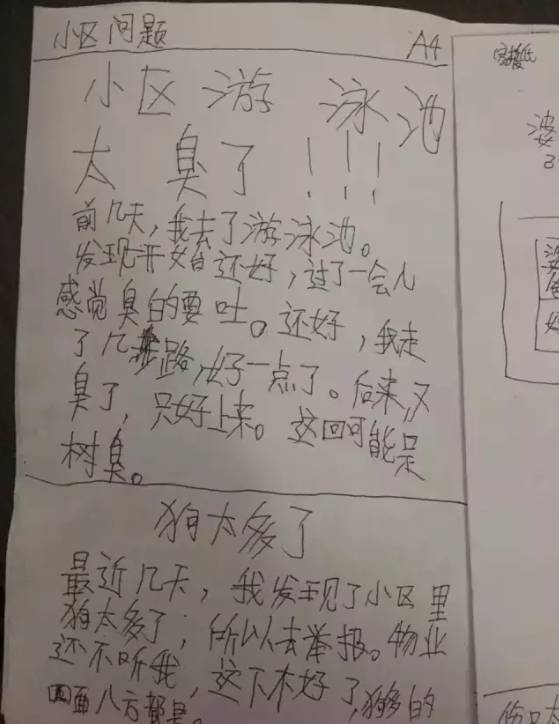 小区问题
A4
小区游泳池
太臭了!!!
前几天,我去了游泳池。
发现开始还好,过了一会儿
感觉臭的要吐。还好,我走
了几步路,好一点了。后来,又
臭了,只好上来。这回可能是
树臭。
狗太多了
最近几天,我发现了小区里
狗太多了,所以去举报。物业
还不听我,这下不好了,狗多的
四面八方都是。
婆